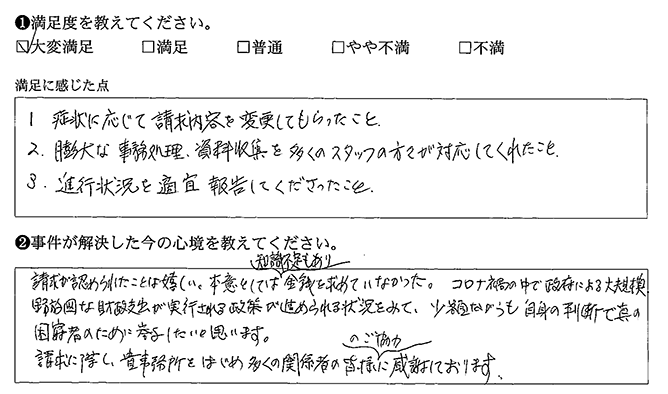 ❶満足度を教えてください。
☑大変満足 □満足 □普通 □やや不満 □不満
満足に感じた点
1 症状に応じて請求内容を変更してもらったこと.
2. 膨大な事務処理、資料収集を多くのスタッフの方々が対応してくれたこと.
3. 進行状況を適宜報告してくださったこと.
❷事件が解決した今の心境を教えてください。
知識不足もあり
請求が認められたことは嬉しい、本意としては金銭を求めていなかった。コロナ禍の中で政府による大規模
野放図な財政支出が実行される政策が進められる状況をみて、少額ながらも自身の判断で真の
困窮者のために寄与したいと思います。
のご協力
請求に際し、貴事務所をはじめ多くの関係者の皆様に感謝しております、